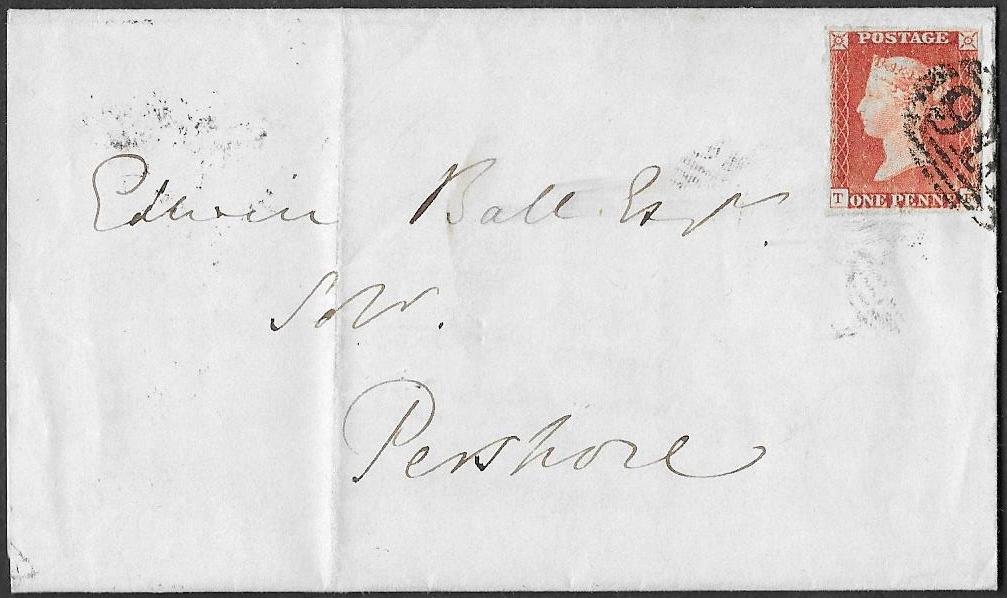 POSTAGE
T ONE PENN
Edwin Ball Esqr.
Solr.
Pershore